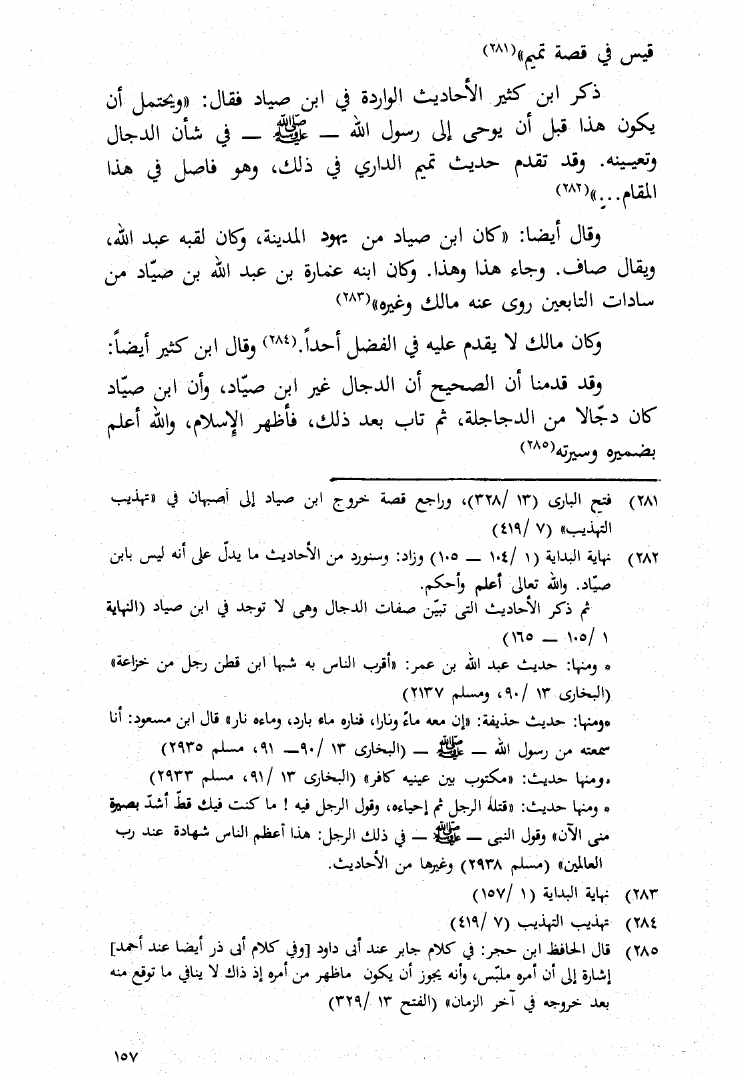 قيس في قصة تميم»(٢٨١)
ذكر ابن كثير الأحاديث الواردة في ابن صياد فقال: «ويحتمل أن
يكون هذا قبل أن يوحى إلى رسول الله ــ ﷺ ــ في شأن الدجال
وتعيينه. وقد تقدم حديث تميم الداري في ذلك، وهو فاصل في هذا
المقام...»(٢٨٢)
وقال أيضا: «كان ابن صياد من يهود المدينة، وكان لقبه عبد الله،
ويقال صاف. وجاء هذا وهذا. وكان ابنه عمارة بن عبد الله بن صيّاد من
سادات التابعين روى عنه مالك وغيره»(٢٨٣)
وكان مالك لا يقدم عليه في الفضل أحداً.(٢٨٤) وقال ابن كثير أيضاً:
وقد قدمنا أن الصحيح أن الدجال غير ابن صيّاد، وأن ابن صيّاد
كان دجّالا من الدجاجلة، ثم تاب بعد ذلك، فأظهر الإسلام، والله أعلم
بضميره وسيرته(٢٨٥)
(٢٨١) فتح البارى (١٣ /٣٢٨)، وراجع قصة خروج ابن صياد إلى أصبهان في «تهذيب
التهذيب» (٧ /٤١٩)
(٢٨٢) نهاية البداية (١ /١٠٤ ــ ١٠٥) وزاد: وسنورد من الأحاديث ما يدلّ على أنه ليس بابن
صيّاد. والله تعالى أعلم وأحكم.
ثم ذكر الأحاديث التى تبيّن صفات الدجال وهى لا توجد في ابن صياد (النهاية
١ /١٠٥ ــ ١٦٥)
* ومنها: حديث عبد الله بن عمر: «أقرب الناس به شبها ابن قطن رجل من خزاعة»
(البخارى ١٣ /٩٠، ومسلم ٢١٣٧)
*ومنها: حديث حذيفة: «إن معه ماءً ونارا، فناره ماء بارد، وماءه نار» قال ابن مسعود: أنا
سمعته من رسول الله ــ ﷺ ــ (البخارى ١٣ /٩٠ــ ٩١، مسلم ٢٩٣٥)
*ومنها حديث: «مكتوب بين عينيه كافر» (البخارى ١٣ /٩١، مسلم ٢٩٣٣)
* ومنها حديث: «قتلهُ الرجل ثم إحياءه، وقول الرجل فيه ! ما كنت فيك قطّ أشدّ بصيرة
منى الآن» وقول النبى ــ ﷺ ــ في ذلك الرجل: هذا أعظم الناس شهادة عند رب
العالمين» (مسلم ٢٩٣٨) وغيرها من الأحاديث.
(٢٨٣) نهاية البداية (١ /١٥٧)
(٢٨٤) تهذيب التهذيب (٧ /٤١٩)
(٢٨٥) قال الحافظ ابن حجر: في كلام جابر عند أبى داود [وفي كلام أبى ذر أيضا عند أحمد]
إشارة إلى أن أمره ملبّس، وأنه يجوز أن يكون ماظهر من أمره إذ ذاك لا ينافي ما توقع منه
بعد خروجه في آخر الزمان» (الفتح ١٣ /٣٢٩)
١٥٧